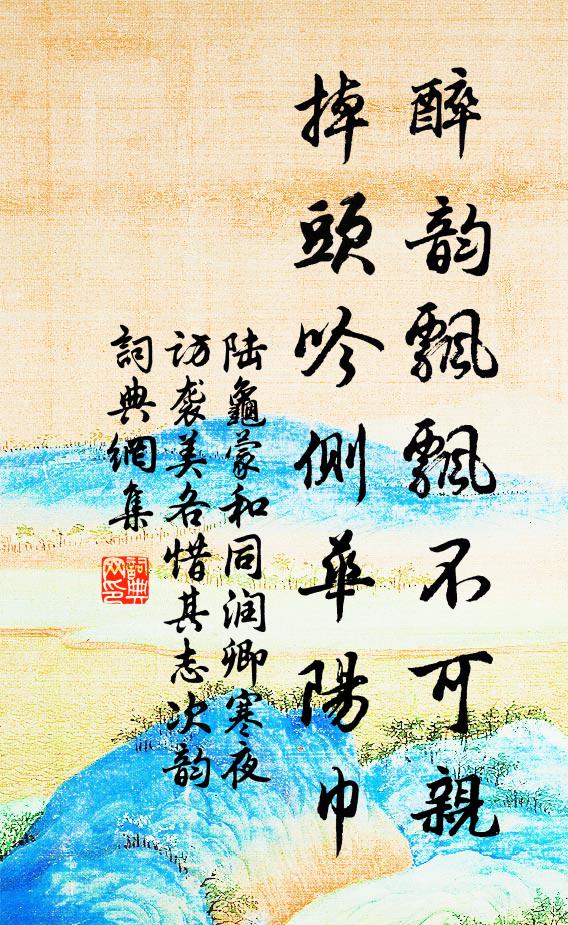 醉韵飄飄不可親
掉頭吟側華陽巾
陆龜蒙和同润卿寒夜
访袭美各惜其志次韵
詞典網集
詞典
网印